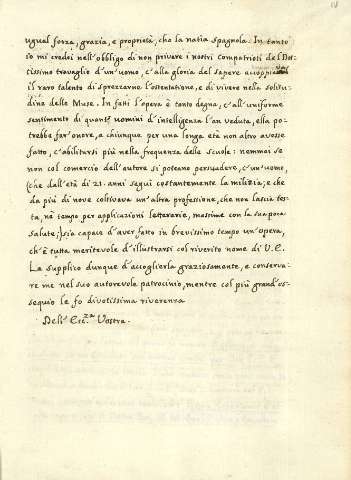 ugual forza, grazia, e proprietà, cho la natia spagnola. In tanto
io mi credei nell'obbligo di non privare i nostri Compatrioti del Dot-
tissimo travaglio d'un'uomo, c'alla gloria del sapere accoppia
il raro talento di sprezzarne l'ostentazione, e di vivere nella solitu-
dine delle Muse. In fatti l'opera è tanto degna, c'all'uniforme
sentimento di quanti uomini d'intelligenza l'an veduta, ella po-
trebbe far'onore, a chiunque per una longa età non altro avesse
fatto, c'abilitarsi più nella frequenza delle scuole: nemmai se
non col comercio dell'autore si poteano persuadere, c'un'uomo,
(che dall'età di 21. anni seguì costantemente la milizia; e che
da più di nove coltivava un'altra professione, che non lascia tes-
ta, nà tempo per applicazioni letterarie, massime con la sua poca
salute;) sia capace d'aver fatto in brevissimo tempo un'opera,
ch'è tutta meritevole d'illustrarsi col riverito nome di V.E.
La supplico dunque d'accoglierla graziosamente, e conserva-
re me nel suo autorevole patrocinio, mentre col più grand'os-
sequio le fo divotissima riverenza
Dell'Ecc.za Vostra.